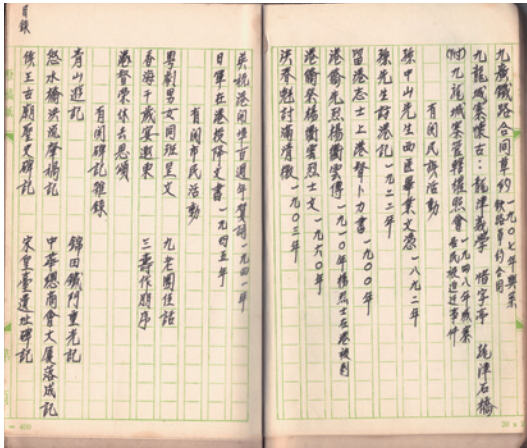 九廣鐵路合同草約 一九〇七年與英鐵路草約合同
九龍城寨懷古：龍津義學 惜字亭 龍津石橋
(附)九龍城寨管轄權照會 一九四八年城寨居民被迫遷事件
有關民族活動
孫中山先生西醫畢業文憑 一八九二年
孫先生訪港記 一九二三年
留港志士上港督卜力書 一九〇〇年
港僑先烈楊衢雲傳 一九一〇年楊烈士在港被刺
港僑祭楊衢雲烈士文 一九六〇年
洪春魁討滿清檄 一九〇三年
目錄
英杭港開埠百週年賀詞 一九四一年
日軍在港投降文書 一九四五年
有關市民活動
粵劇男女同班呈文 九老團佳話
香海千歲宴邀柬 三壽作朋序
港督榮休去思頌
有關碑記雜錄
青山遊記 錦田鐵門重光記
怒水橋洪流肇禍記 中華總商會大廈落成記
侯王古廟歷史碑記 宋皇臺遺址碑記
= 400
20 x